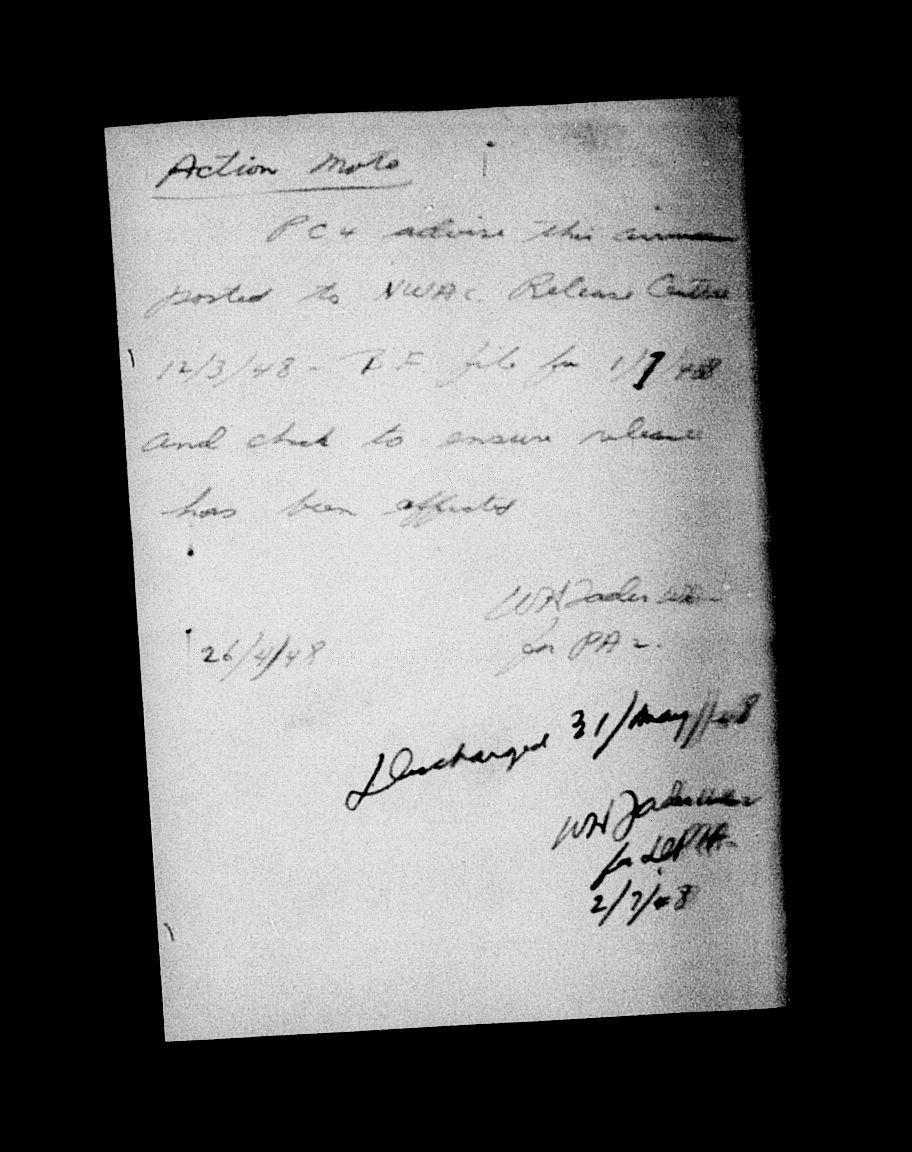 Action Note
PC4 advise this airman
posted to NWAC. Release Centre
12/3/48 - B.F. file for 1/7/48
and check to ensure release
has been effected
WH
26/4/48 for PA2.
Discharged 31/May/48
WH
for
2/7/48